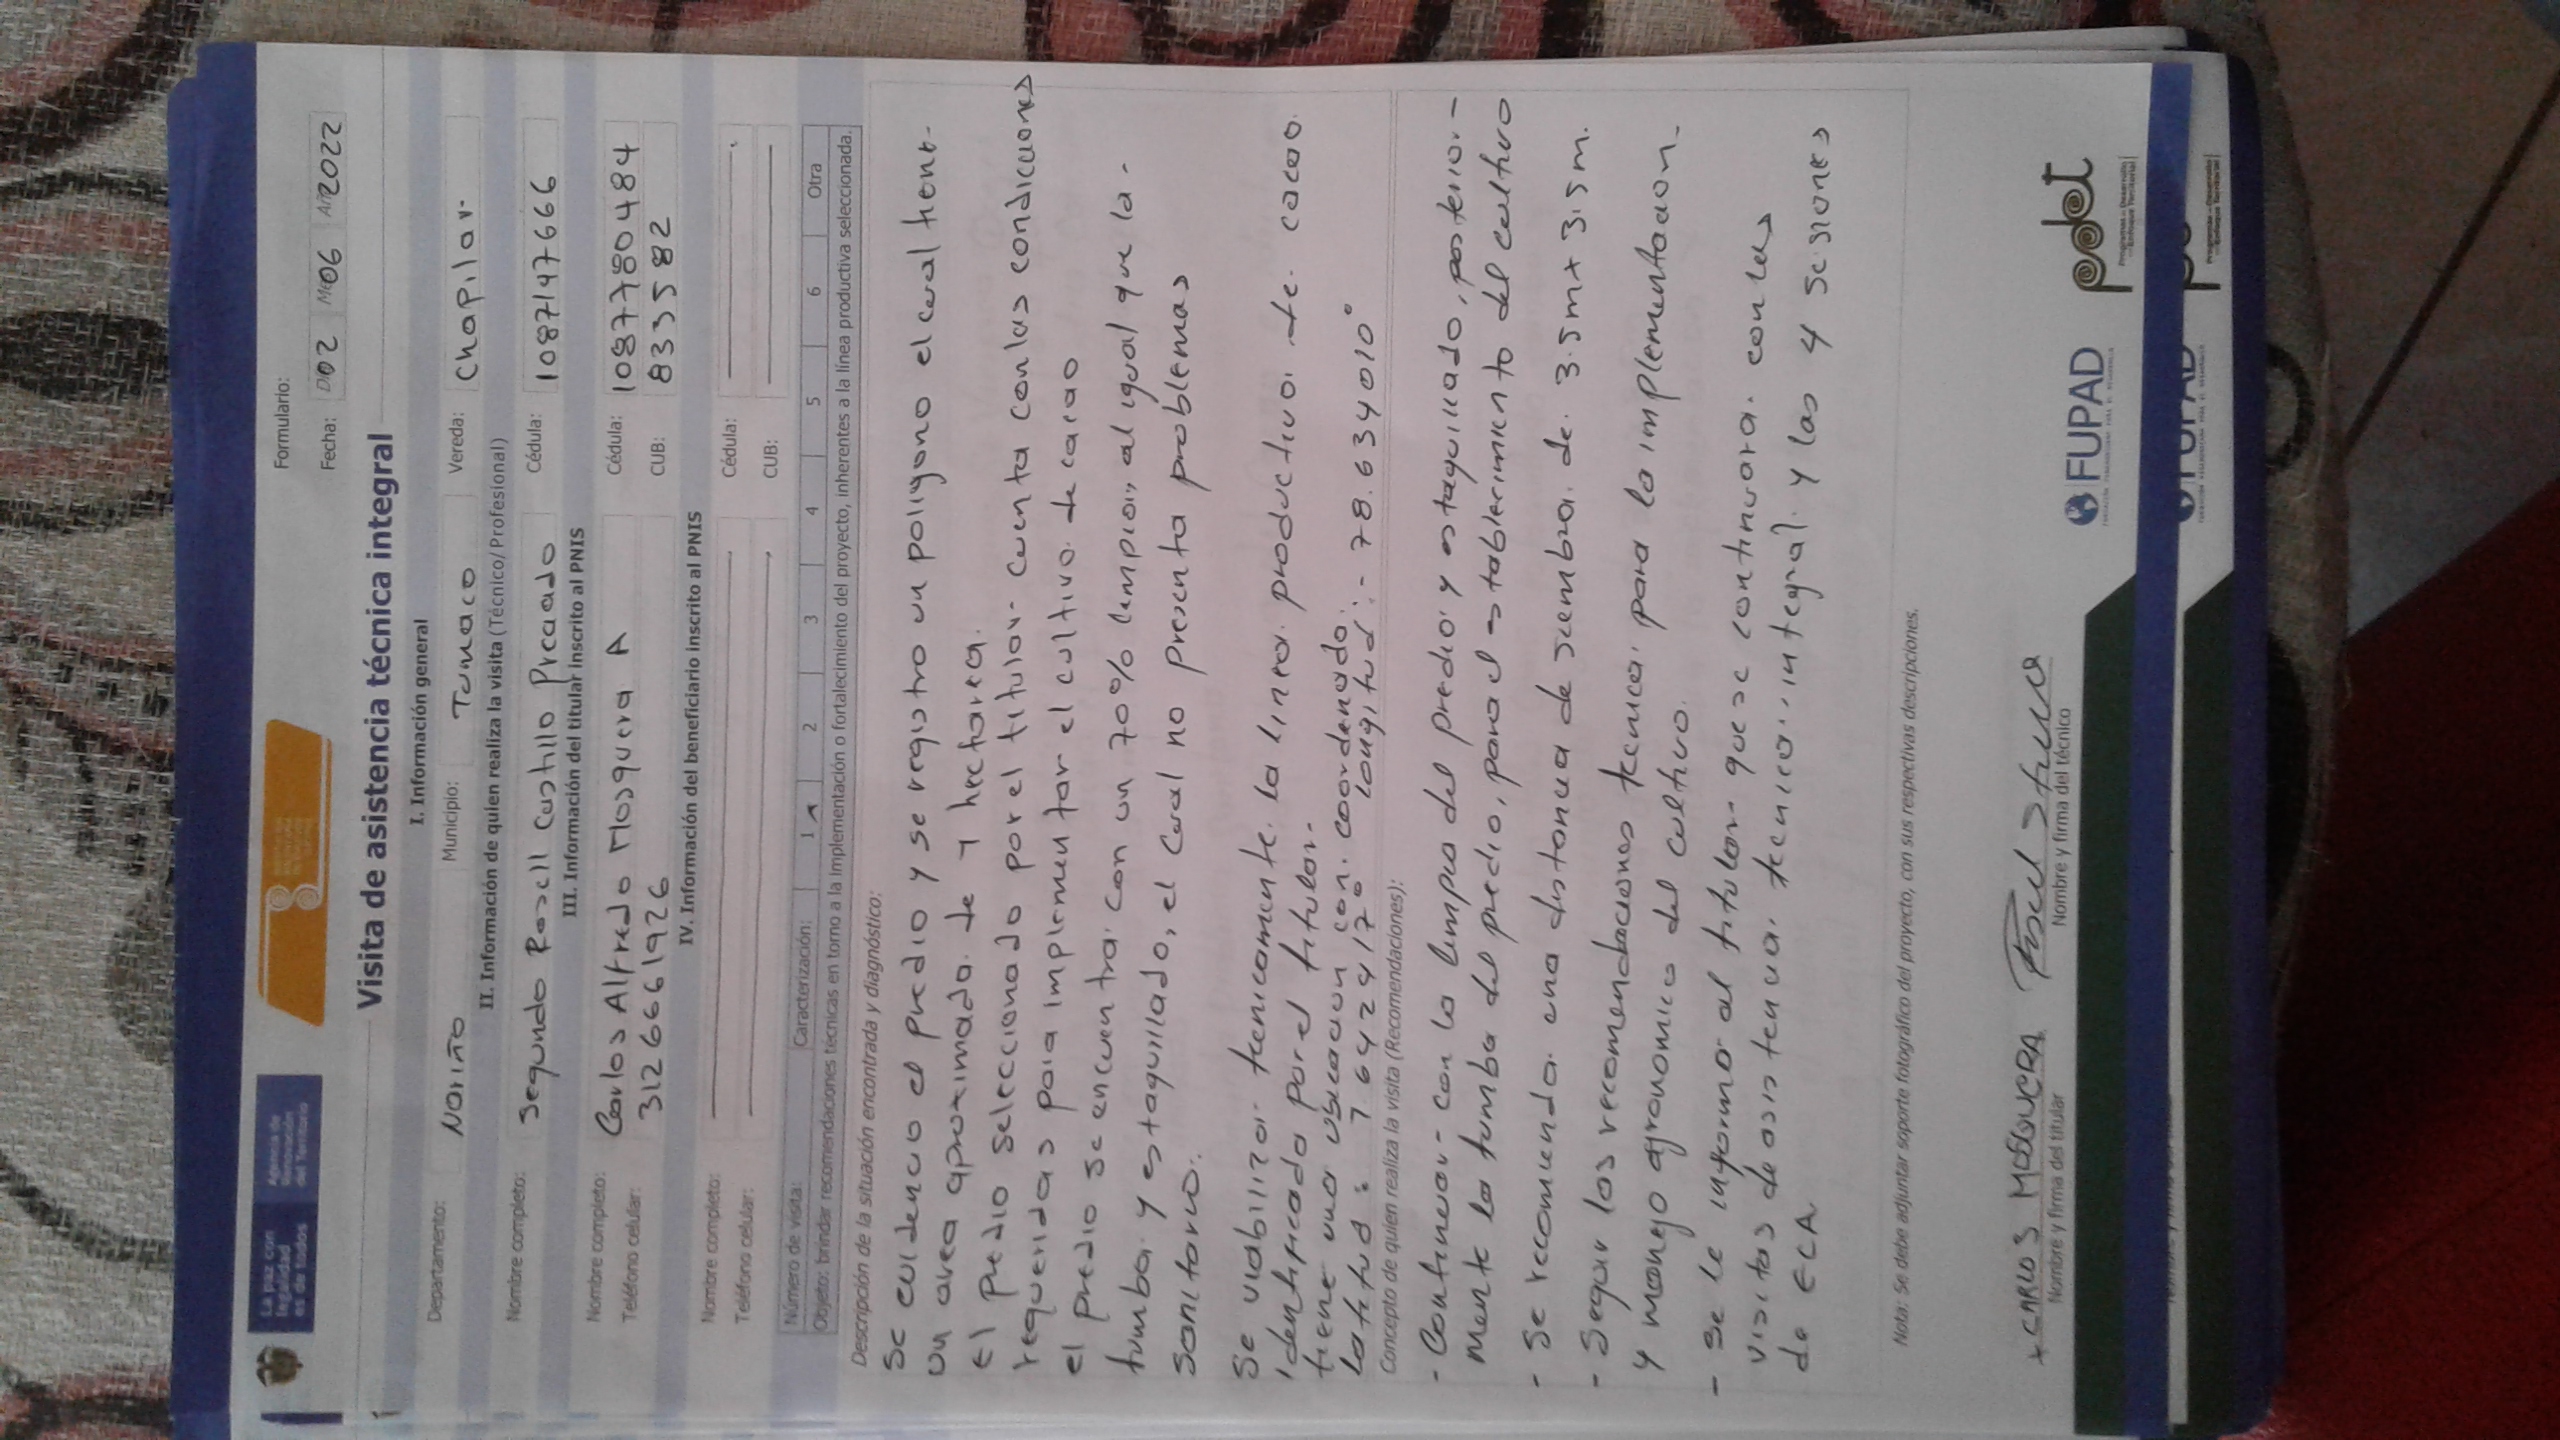 La paz con
legalidad
es de todos
Agencia de
Renovación
del Territorio
Formulario:
Fecha: D02 M06 A2022
Visita de asistencia técnica integral
I. Información general
Departamento: Nariño Municipio: Tumaco Vereda: Chapilar
II. Información de quien realiza la visita (Técnico/Profesional)
Nombre completo: Segundo Rosell Castillo Preciado Cédula: 1087147666
III. Información del titular inscrito al PNIS
Nombre completo: Carlos Alfredo Mosquera A Cédula: 1087780484
Teléfono celular: 3126661926 CUB: 833582
IV. Información del beneficiario inscrito al PNIS
Nombre completo: Cédula:
Teléfono celular: CUB:
Número de visita: Caracterización: 1 x 2 3 4 5 6 Otra
Objeto: brindar recomendaciones técnicas en torno a la implementación o fortalecimiento del proyecto, inherentes a la línea productiva seleccionada.
Descripción de la situación encontrada y diagnóstico:
Se evidencio el predio y se registro un poligono el cual tiene
un area aproximada de 1 hectarea.
El predio seleccionado por el titular cuenta con las condiciones
requeridas para implementar el cultivo de cacao
el predio se encuentra con un 70% limpio, al igual que la
tumba y estaquillado, el cual no presenta problemas
sanitario.
Se viabiliza tecnicamente la linea productiva de cacao
identificada por el titular.
tiene una ubicacion con coordenada:
latitud: 1.6424170° longitud: -78.634010°
Concepto de quien realiza la visita (Recomendaciones):
- Continuar con la limpia del predio y estaquillado, posterior-
mente la tumba del predio, para el establecimiento del cultivo
- Se recomienda una distancia de siembra de 3.5m x 3.5m.
- Seguir las recomendaciones tecnica para la implementacion
y manejo agronomico del cultivo.
- Se le informo al titular que se continuara con las
visitas de asistencia tecnica integral y las 4 sesiones
de ECA
Nota: Se debe adjuntar soporte fotográfico del proyecto, con sus respectivas descripciones.
x CARLOS MOSQUERA
Nombre y firma del titular
Nombre y firma del técnico
FUPAD
pdet
Programas de Desarrollo
con Enfoque Territorial